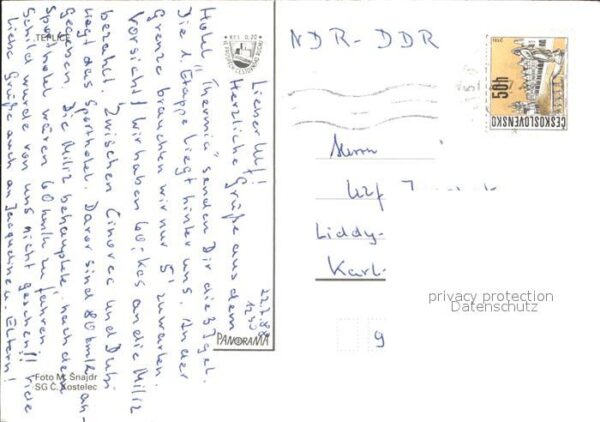 TEPLICE
Kčs 0,20
22.7.88
12³⁰
Lieber Ulf!
Herzliche Grüße aus dem
Hotel "Thermia" senden Dir die 3 Igel.
Die 1. Etappe liegt hinter uns. An der
Grenze brauchten wir nur 5' zu warten.
Vorsicht! Wir haben 60,- Kcs an die Miliz
bezahlt. Zwischen Cinovec und Dubi
liegt das Sporthotel. Davor sind 80 km/h an-
gegeben. Die Miliz behauptete, nach dem
Sporthotel wären 60 km/h zu fahren.
Schild wurde von uns nicht gesehen!!
Liebe Grüße auch an Jacqueline u. Eltern!
PANORAMA
Foto M. Šnajdr
SG Č. Kostelec
NDR-DDR
50h
ČESKOSLOVENSKO
Herrn
Ulf
Liddy-
Karl-
9
privacy protection
Datenschutz